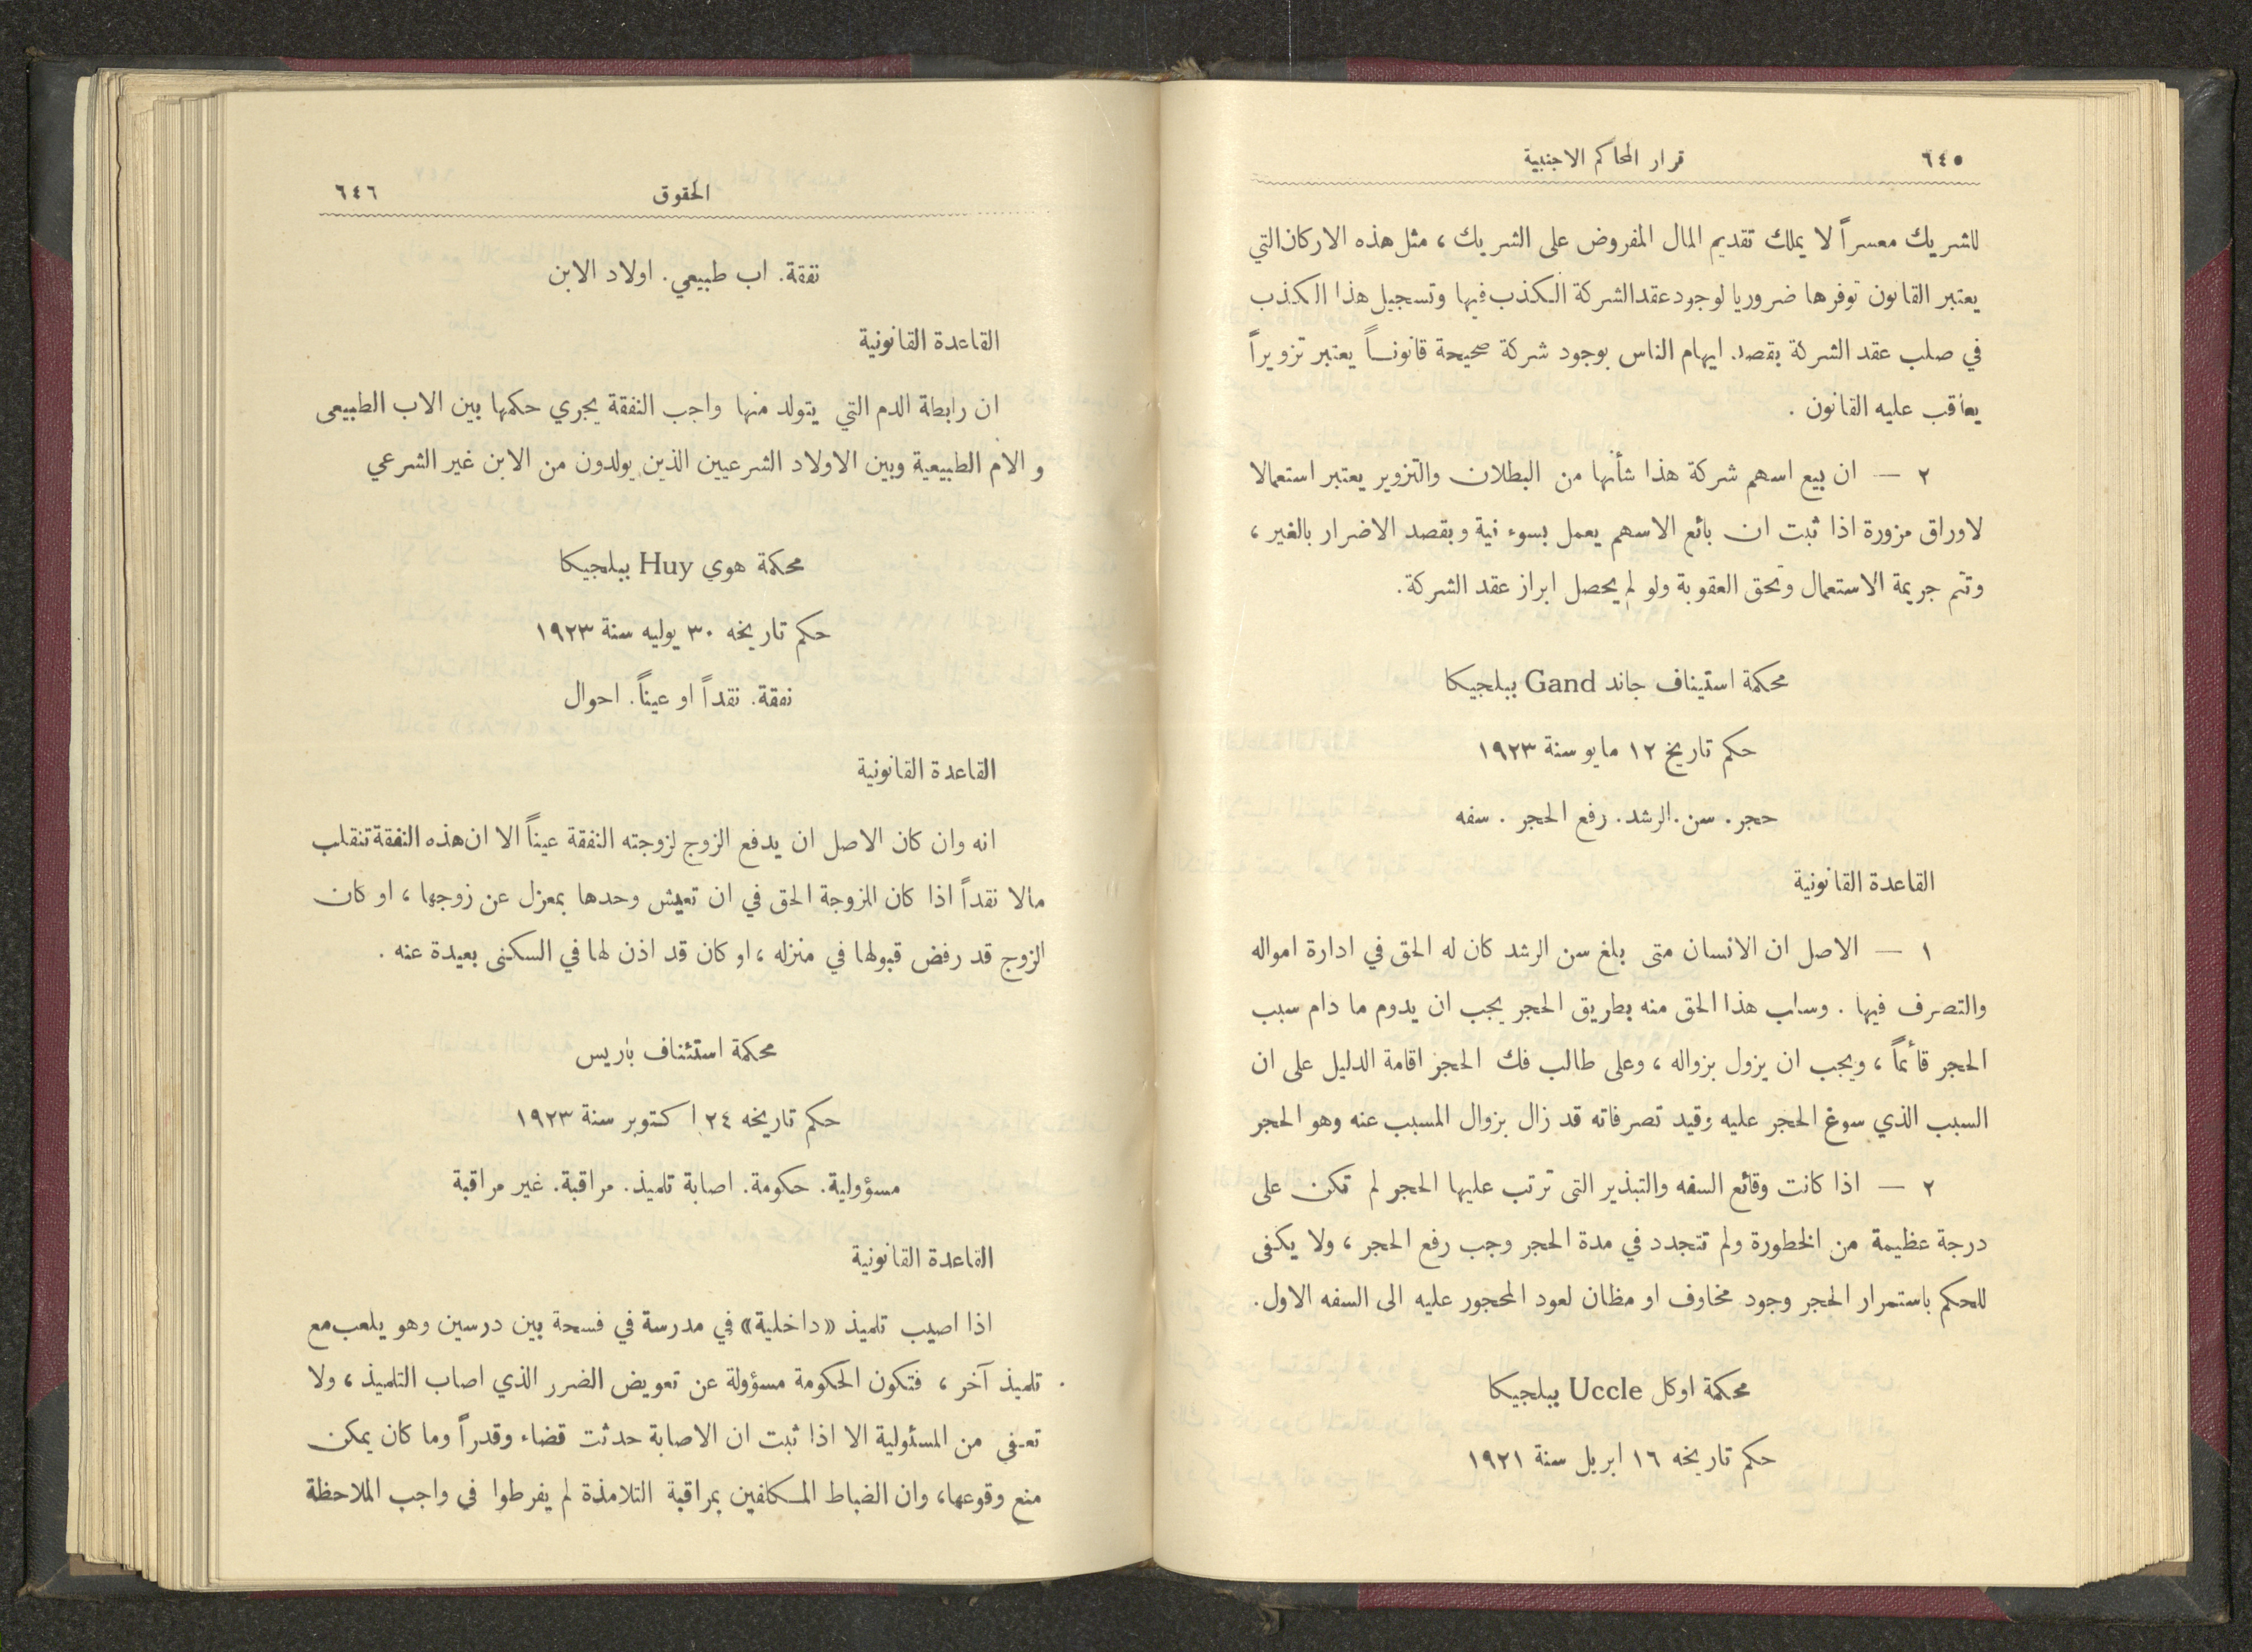 ٦٤٥ قرار المحاكم الاجنبية
للشريك معسراً لا يملك تقديم المال المفروض على الشريك ، مثل هذه الاركان التي
يعتبر القانون توفرها ضروريا لوجود عقد الشركة الكذب فيها وتسجيل هذا الكذب
في صلب عقد الشركة بقصد ايهام الناس بوجود شركة صحيحة قانونــاً يعتبر تزويراً
يعاقب عليه القانون .
٢ — ان بيع اسهم شركة هذا شأنها من البطلان والتزوير يعتبر استعمالا
لاوراق مزورة اذا ثبت ان بائع الاسهم يعمل بسوء نية وبقصد الاضرار بالغير ،
وتتم جريمة الاستعمال وتحق العقوبة ولو لم يحصل ابراز عقد الشركة.
محكمة استيناف جاند Gand ببلجيكا
حكم تاريخ ١٢ مايو سنة ١٩٢٣
حجر. سن. الرشد. رفع الحجر . سفه
القاعدة القانونية
١ — الاصل ان الانسان متى بلغ سن الرشد كان له الحق في ادارة امواله
والتصرف فيها . وسلب هذا الحق منه بطريق الحجر يجب ان يدوم ما دام سبب
الحجر قائماً ، ويجب ان يزول بزواله ، وعلى طالب فك الحجر اقامة الدليل على ان
السبب الذي سوغ الحجر عليه وقيد تصرفاته قد زال بزوال المسبب عنه وهو الحجر
٢ — اذا كانت وقائع السفه والتبذير التى ترتب عليها الحجر لم تكن على
درجة عظيمة من الخطورة ولم تتجدد في مدة الحجر وجب رفع الحجر ، ولا يكفى
للحكم باستمرار الحجر وجود مخاوف او مظان لعود المحجور عليه الى السفه الاول.
محكمة اوكل Uccle ببلجيكا
حكم تاريخه ١٦ ابريل سنة ١٩٢١
الحقوق ٦٤٦
نفقة. اب طبيعي. اولاد الابن
القاعدة القانونية
ان رابطة الدم التي يتولد منها واجب النفقة يجري حكمها بين الاب الطبيعى
و الام الطبيعية وبين الاولاد الشرعيين الذين يولدون من الابن غير الشرعي
محكمة هوي Huy ببلجيكا
حكم تاريخه ٣٠ يوليه سنة ١٩٢٣
نفقة. نقداً او عيناً. احوال
القاعدة القانونية
انه وان كان الاصل ان يدفع الزوج لزوجته النفقة عيناً الا ان هذه النفقة تنقلب
مالا نقداً اذا كان للزوجة الحق في ان تعيش وحدها بمعزل عن زوجها ، او كان
الزوج قد رفض قبولها في منزله ، او كان قد اذن لها في السكنى بعيدة عنه .
محكمة استئناف باريس
حكم تاريخه ٢٤ اكتوبر سنة ١٩٢٣
مسؤولية. حكومة. اصابة تلميذ. مراقبة. غير مراقبة
القاعدة القانونية
اذا اصيب تلميذ «داخلية» في مدرسة في فسحة بين درسين وهو يلعب مع
تلميذ آخر ، فتكون الحكومة مسؤولة عن تعويض الضرر الذي اصاب التلميذ ، ولا
تعفى من المسئولية الا اذا ثبت ان الاصابة حدثت قضاء وقدراً وما كان يمكن
منع وقوعها، وان الضباط المكلفين بمراقبة التلامذة لم يفرطوا في واجب الملاحظة